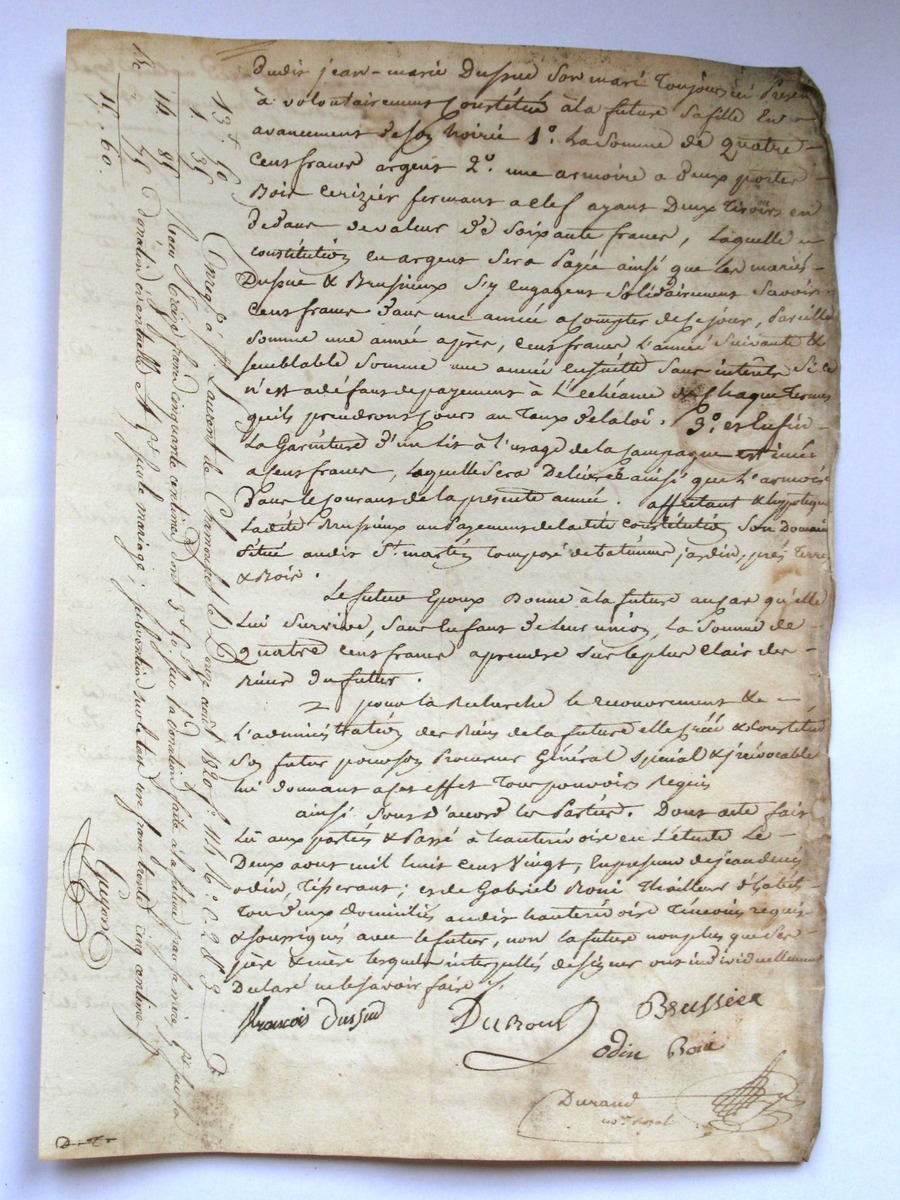 dudit jean-marie Dussud son mari Toujours ici Present
à volontairement Constitué à la future sa fille En
avancement de son hoirie 1o. La Somme de Quatre
Cens francs argent 2o. une armoire a deux portes
Bois Cerizier fermant a clef ayant Deux Tiroirs en
dedans de valeur de Soixante francs, Laquelle
Constitution en argent Sera Payée ainsi que les mariés
Dussud & Brussieux S'y engagent Solidairement Savoir
Cens francs dans une année a Compter de ce jour, Pareille
Somme une année après, Cens francs L'année Suivante &
semblable Somme une année ensuitte Sans interêts Si ce
n'est a défaut de payement à L'echéance de Chaque Termes
qu'ils prendront Cours au Taux de la loi. 3o. et Enfin
La Garniture d'un Lit à l'usage de la Campagne estimée
a Cens francs, Laquelle Sera Délivrée ainsi que L'armoire
Dans le Courant de la présente année. affectant & hypotéquant
Ladite Brussieux au Payement de la dite Constitution Son Domaine
Situé audit St. martin Composé de batiments jardin, prés Terre
& Bois.
Le futur Epoux Donne à la future au cas qu'elle
Lui Survive, Sans Enfans de leur union, La Somme de
Quatre Cens francs a prendre Sur le plus Clair des
Biens du futur.
pour la Recherche le recouvrement &
L'administration des Biens de la future elle Créé & Constitué
Son futur pour son Procureur Général Spécial & irrévocable
lui donnant a cet effet Tous pouvoirs Requis
ainsi Sont d'accord les Parties. Dont acte fait
Lû aux parties & Passé à hauterivoire en L'etude Le
Deux aout mil huit Cens Vingt, En presence de jean denis
odin, Tisserant; et de Gabriel Boni Thailleur d'habits
Tous deux Domiciliés audit hauterivoire Témoins requis
& Soussignés avec le futur, non la future non plus que Ses
père & mère lesquels interpellés de Signer ont individuellement
Déclaré ne le Savoir faire
francois dussud
Dubouis
Brussieu
odin Boni
Durand
no.re Royal
13f. 50
1. 35
14 85
75
15. 60.
Enreg. à St. Laurent de Chamousset le Douze aout 1820 fo. 114 Ro. C. 2 & 3
Recu treize francs cinquante centimes, dont 3f. 50. sur la donation faite à la future par sa mère
donation éventuelle & pour le mariage; subvention sur le tout un franc trente cinq centimes
Guyon